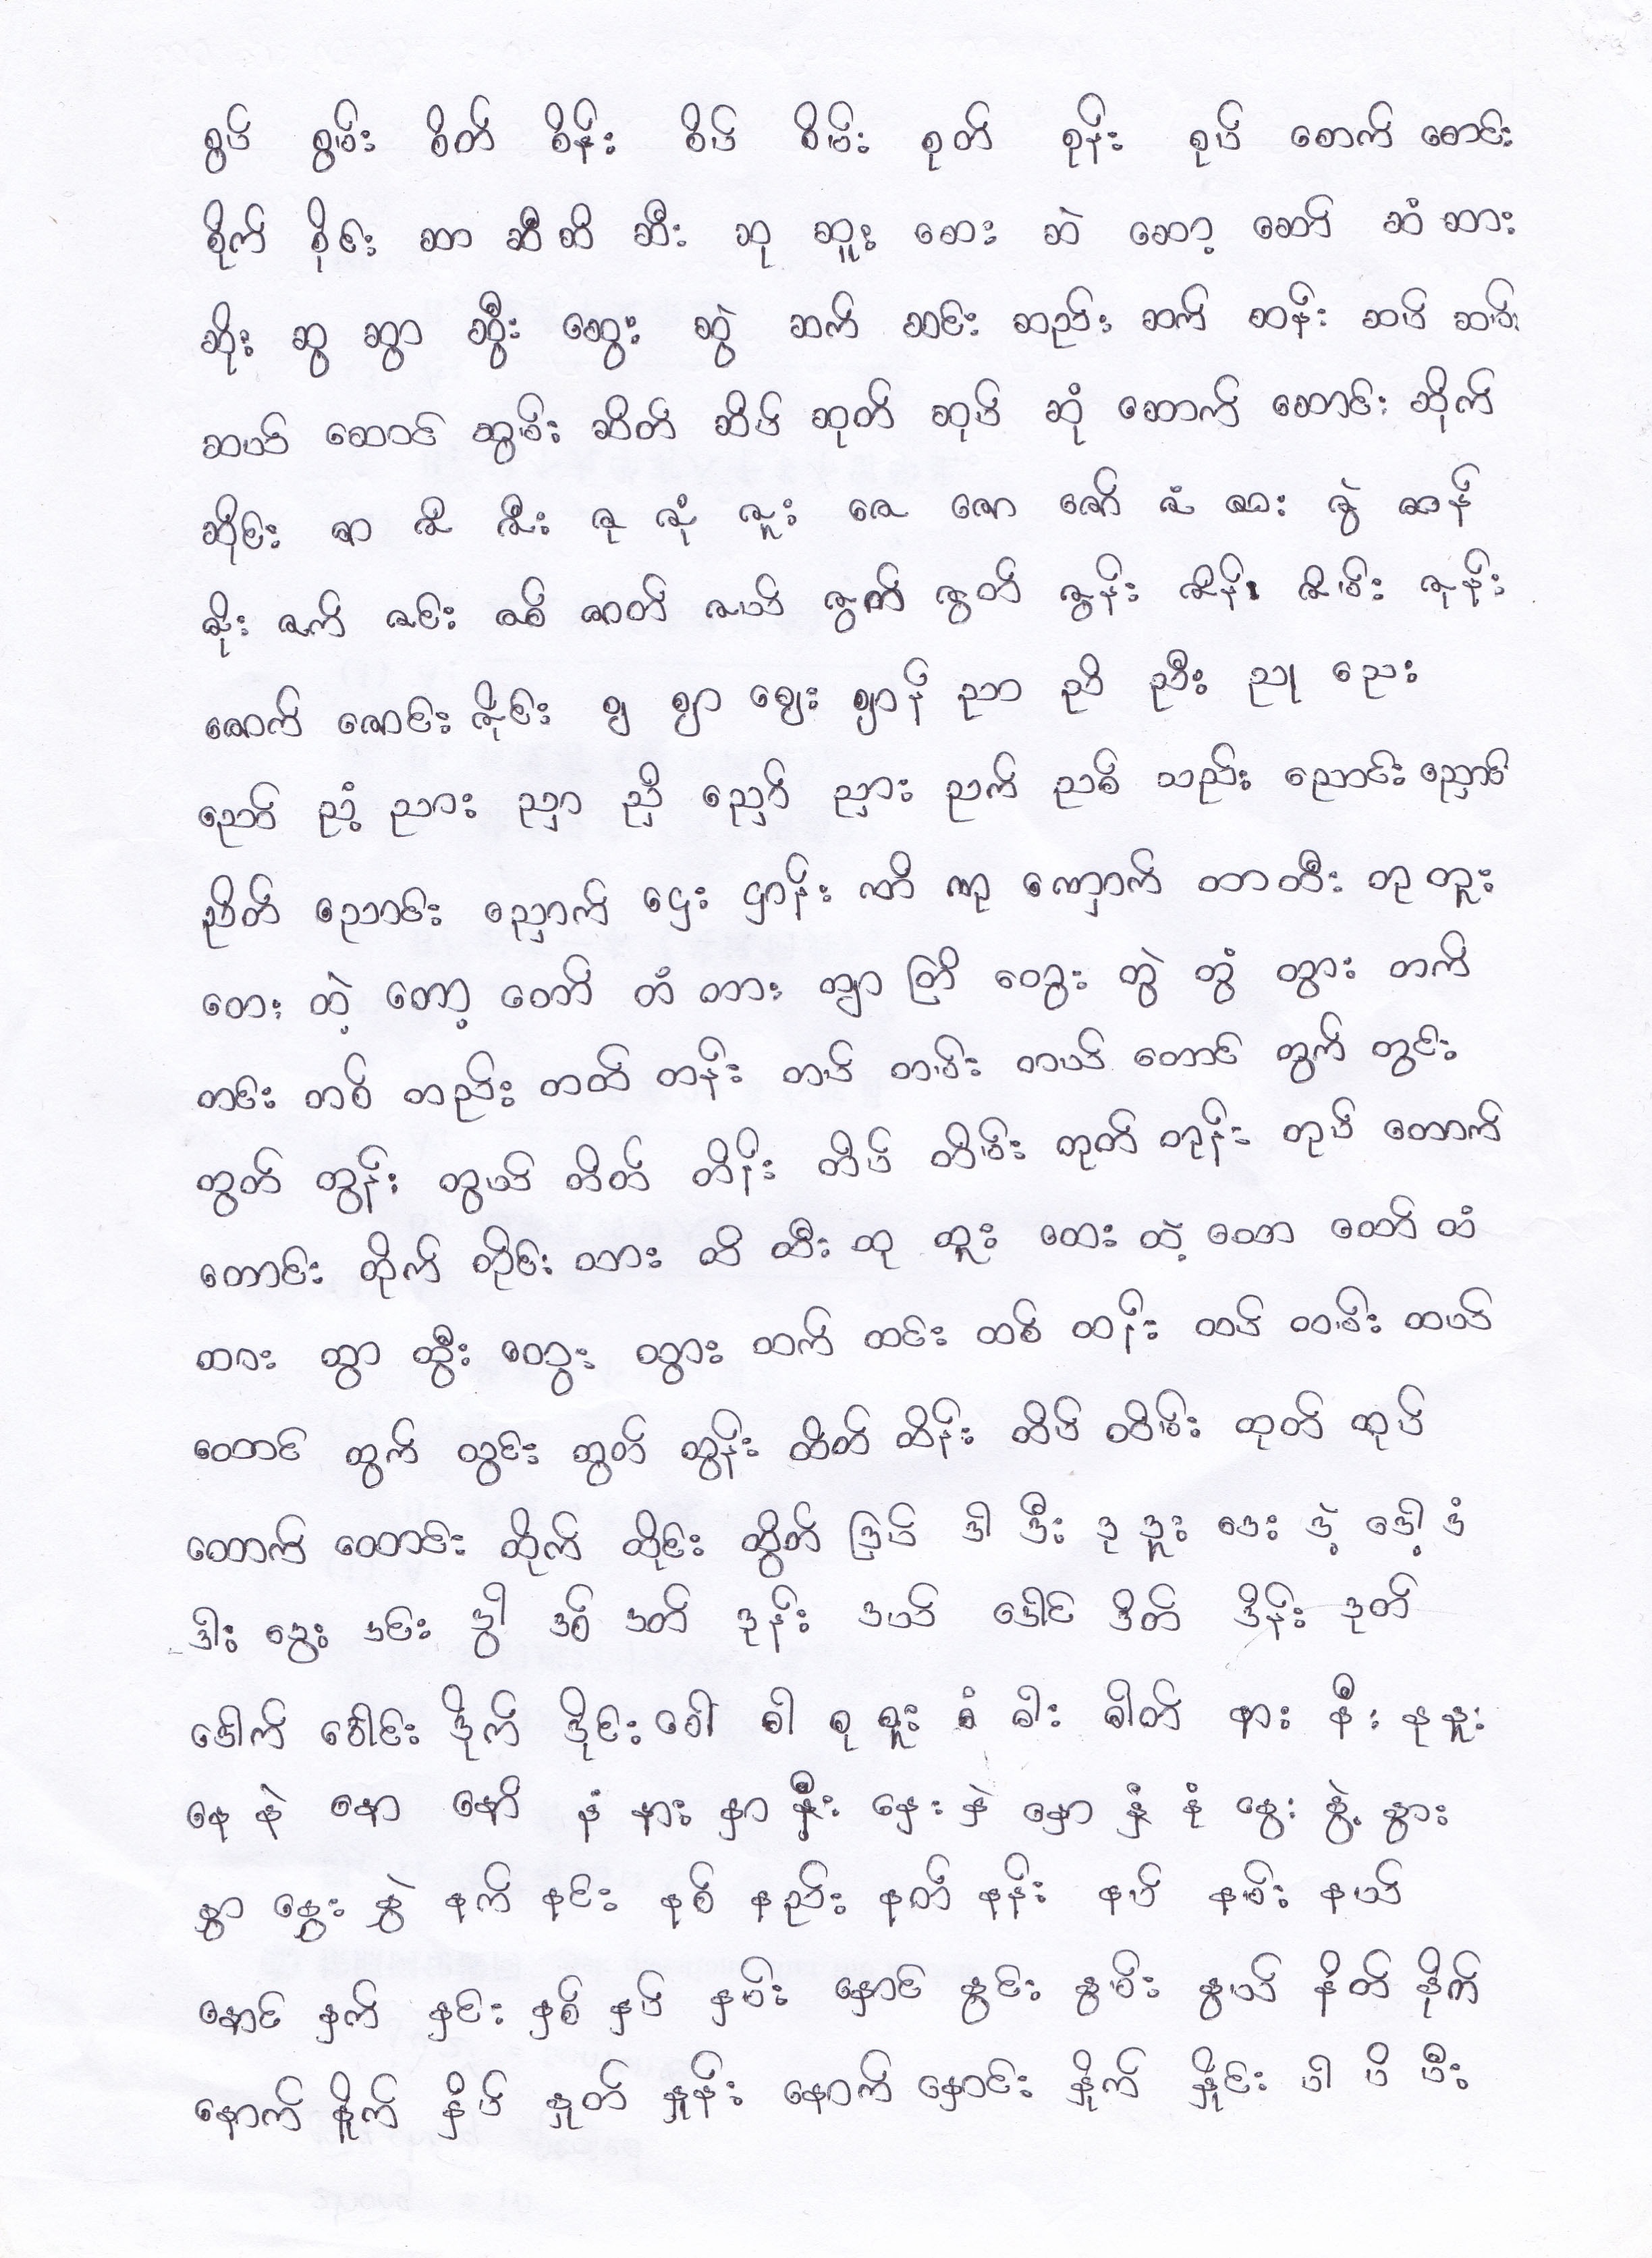 စွပ် စွမ်း စိတ် စိန်း စိပ် စိမ်း စုတ် စုန်း စုပ် စောက် စောင်း
စိုက် စိုင်း ဆာ ဆီ ဆိ ဆီး ဆု ဆူး ဆေး ဆဲ ဆော့ ဆော် ဆံ ဆား
ဆိုး ဆွ ဆွာ ဆွီး ဆွေး ဆွဲ ဆက် ဆင်း ဆည်း ဆက် ဆန်း ဆပ် ဆမ်း
ဆယ် ဆောင် ဆွမ်း ဆိတ် ဆိပ် ဆုတ် ဆုပ် ဆုံ ဆောက် ဆောင်း ဆိုက်
ဆိုင်း ဇာ ဇိ ဇီး ဇု ဇုံ ဇူး ဇေ ဇော ဇော် ဇံ ဇား ဇွဲ ဇာန်
ဇိုး ဇက် ဇင်း ဇစ် ဇာတ် ဇယ် ဇွက် ဇွတ် ဇွန်း ဇိန်း ဇိမ်း ဇုန်း
ဇောက် ဇောင်း ဇိုင်း ဈ ဈာ ဈေး ဈာန် ညာ ညိ ညီး ညု ညေး
ညော် ညံ့ ညား ညှာ ညှိ ညှော် ညှား ညက် ညစ် သည်း ညောင်း ညှော်
ညိတ် ညောင်း ညှောက် ဌေး ဌာန်း ဏိ ဏု ဏှောက် တာ တီး တု တူး
တေး တဲ့ တော့ တော် တံ တား တျာ တြိ တွေး တွဲ တွံ တွား တက်
တင်း တစ် တည်း တတ် တန်း တပ် တမ်း တယ် တောင် တွက် တွင်း
တွတ် တွန်း တွယ် တိတ် တိန်း တိပ် တိမ်း တုတ် တုန်း တုပ် တောက်
တောင်း တိုက် တိုင်း ထား ထိ ထီး ထု ထူး ထေး ထဲ့ ထော ထော် ထံ
ထား ထွာ ထွီး ထွေး ထွား ထက် ထင်း ထစ် ထန်း ထပ် ထမ်း ထယ်
ထောင် ထွက် ထွင်း ထွတ် ထွန်း ထိတ် ထိန်း ထိပ် ထိမ်း ထုတ် ထုပ်
ထောက် ထောင်း ထိုက် ထိုင်း ထွိတ် ဒြပ် ဒါ ဒီး ဒု ဒူး ဒေး ဒဲ့ ဒေါ့ ဒံ
ဒါး ဒွေး ဒင်း ဒွါ ဒစ် ဒတ် ဒုန်း ဒယ် ဒေါင် ဒိတ် ဒိန်း ဒုတ်
ဒေါက် ဒေါင်း ဒိုက် ဒိုင်း ဓေါ ဓါ ဓု ဓူး ဓံ ဓါး ဓါတ် နား နီး နု နူး
နေ နဲ နော နော် နံ နား နှာ နှီး နှေး နှဲ နှော နှံ နံ နွေး နွဲ့ နွား
နွှာ နွှေး နွှဲ နက် နင်း နစ် နည်း နတ် နန်း နပ် နမ်း နယ်
နောင် နှက် နှင်း နှစ် နှပ် နှမ်း နှောင် နွင်း နွမ်း နွယ် နိတ် နိုက်
နောက် နှိုက် နှိပ် နှုတ် နှုန်း နှောက် နှောင်း နှိုက် နှိုင်း ပါ ပိ ပီး